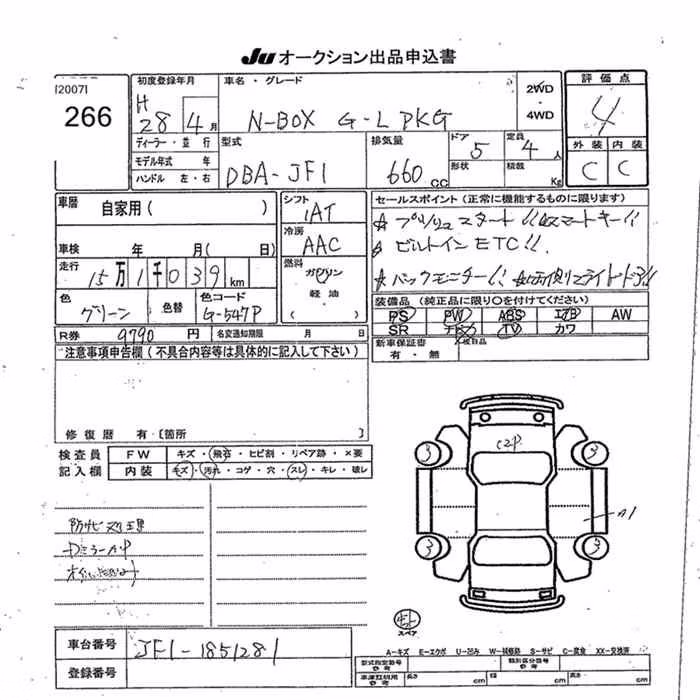 JU オークション出品申込書
[2007]
266
初度登録年月
H
28 4 月
ディーラー・並行
モデル年式 年
ハンドル 左・右
車名・グレード
N-BOX G-L PKG
2WD
・
4WD
型式
DBA-JF1
排気量
660 cc
ドア
5
形状
定員
4 人
積載
Kg
評価点
4
外装 内装
C C
車歴
自家用( )
車検 年 月( 日)
走行
15万1千039 km
色
グリーン
色替
色コード
G-547P
シフト
IAT
冷房
AAC
燃料
ガソリン
軽油
( )
セールスポイント(正常に機能するものに限ります)
☆ プッシュスタート!! スマートキー!!
☆ ビルトインETC!!
☆ バックモニター!!
装備品(純正品に限り〇を付けてください)
PS PW ABS エアB AW
SR ナビ TV カワ
新車保証書 ×後日品
有・無
R券 9790 円 名変通知期限 月 日
注意事項申告欄(不具合内容等は具体的に記入して下さい)
修復歴 有・[箇所 ]
検査員
記入欄
FW キズ・飛石・ヒビ割・リペア跡・×要
内装 キズ・汚れ・コゲ・穴・スレ・キレ・破レ
防サビ処理
C2P
3 3
A1
3 3
スペア
車台番号 JF1-1851281
登録番号
A-キズ E-エクボ U-凹み W-補修跡 S-サビ C-腐食 XX-交換済
型式指定番号
参考
類別区分番号
参考
車庫証明用
参考
長さ cm 幅 cm 高さ cm